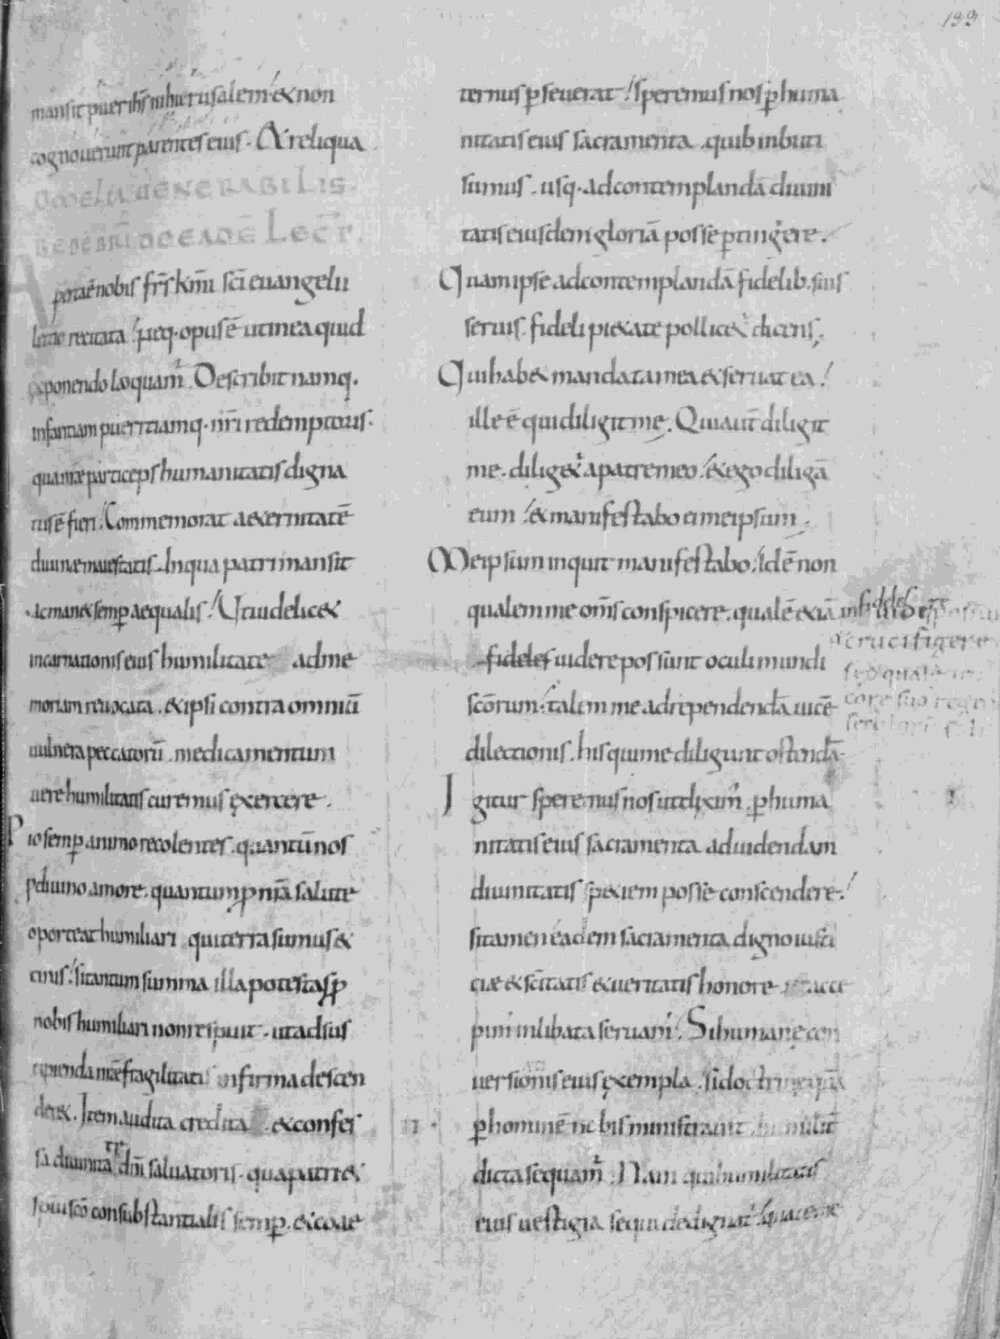 199
mansit puer ihs inhierusalem & non
cognouerunt parentes eius. & reliqua
OMELIA UENERABILIS
BEDE PRBI DE EADE LECT.
Aperta ē nobis frs kmi sci euangelii
lectio recitata, neq. opus ē ut in ea quid
exponendo loquam̄. Describit namq.
infantiam pueritiamq. nri redemptoris.
qua nrae particeps humanitatis digna
tus ē fieri. Commemorat aeternitatē
diuinae maiestatis. In qua patri mansit
ac man& semp aequalis. Ut uidelic&
incarnationis eius humilitate ad me
moriam reuocata. & ipsi contra omniū
uulnera peccatorū. medicamentum
uere humilitatis curemus exercere.
Pio semp animo recolentes. quantū nos
p diuino amore. quantum p nra salute
oporteat humiliari qui terra sumus &
cinis. si tantum summa illa potestas p
nobis humiliari non respuit. ut ad sus
cipienda nrae fragilitatis infirma descen
der&. Item audita credita & confes
sa diuinitate dni saluatoris. qua patri &
spui sco consubstantialis semp. & coae
ternus pseuerat. speremus nos p huma
nitatis eius sacramenta. quib inbuti
sumus. usq. ad contemplandā diuini
tatis eiusdem gloriā posse ptingere.
Quam ipse ad contemplandā fidelib. suis
seruis. fideli pietate pollicet dicens.
Qui hab& mandata mea & seruat ea.
ille ē qui diligit me. Qui aut̄ diligit
me. dilig& a patre meo. & ego diligā
eum. & manifestabo ei me ipsum.
Me ipsum inquit manifestabo. Id ē non
qualem me oms conspicere. qualē etiā infideles
& crucifigere
fideles uidere possunt oculi mundi
sed quale
scorum. talem me ad rependendā uicē
dilectionis. his qui me diligunt ostendā
Igitur speremus nos ut diximus. p huma
nitatis eius sacramenta ad uidendam
diuinitatis speciem posse conscendere.
si tamen eadem sacramenta digno iusti
ciae & scitatis & ueritatis honore ut acce
pim inlibata seruam. Si humane con
uersionis eius exempla. si doctrinae
p hominē nobis ministrauit humilit
dicta sequam̄. Nam qui humilitatis
eius uestigia sequi dedignat